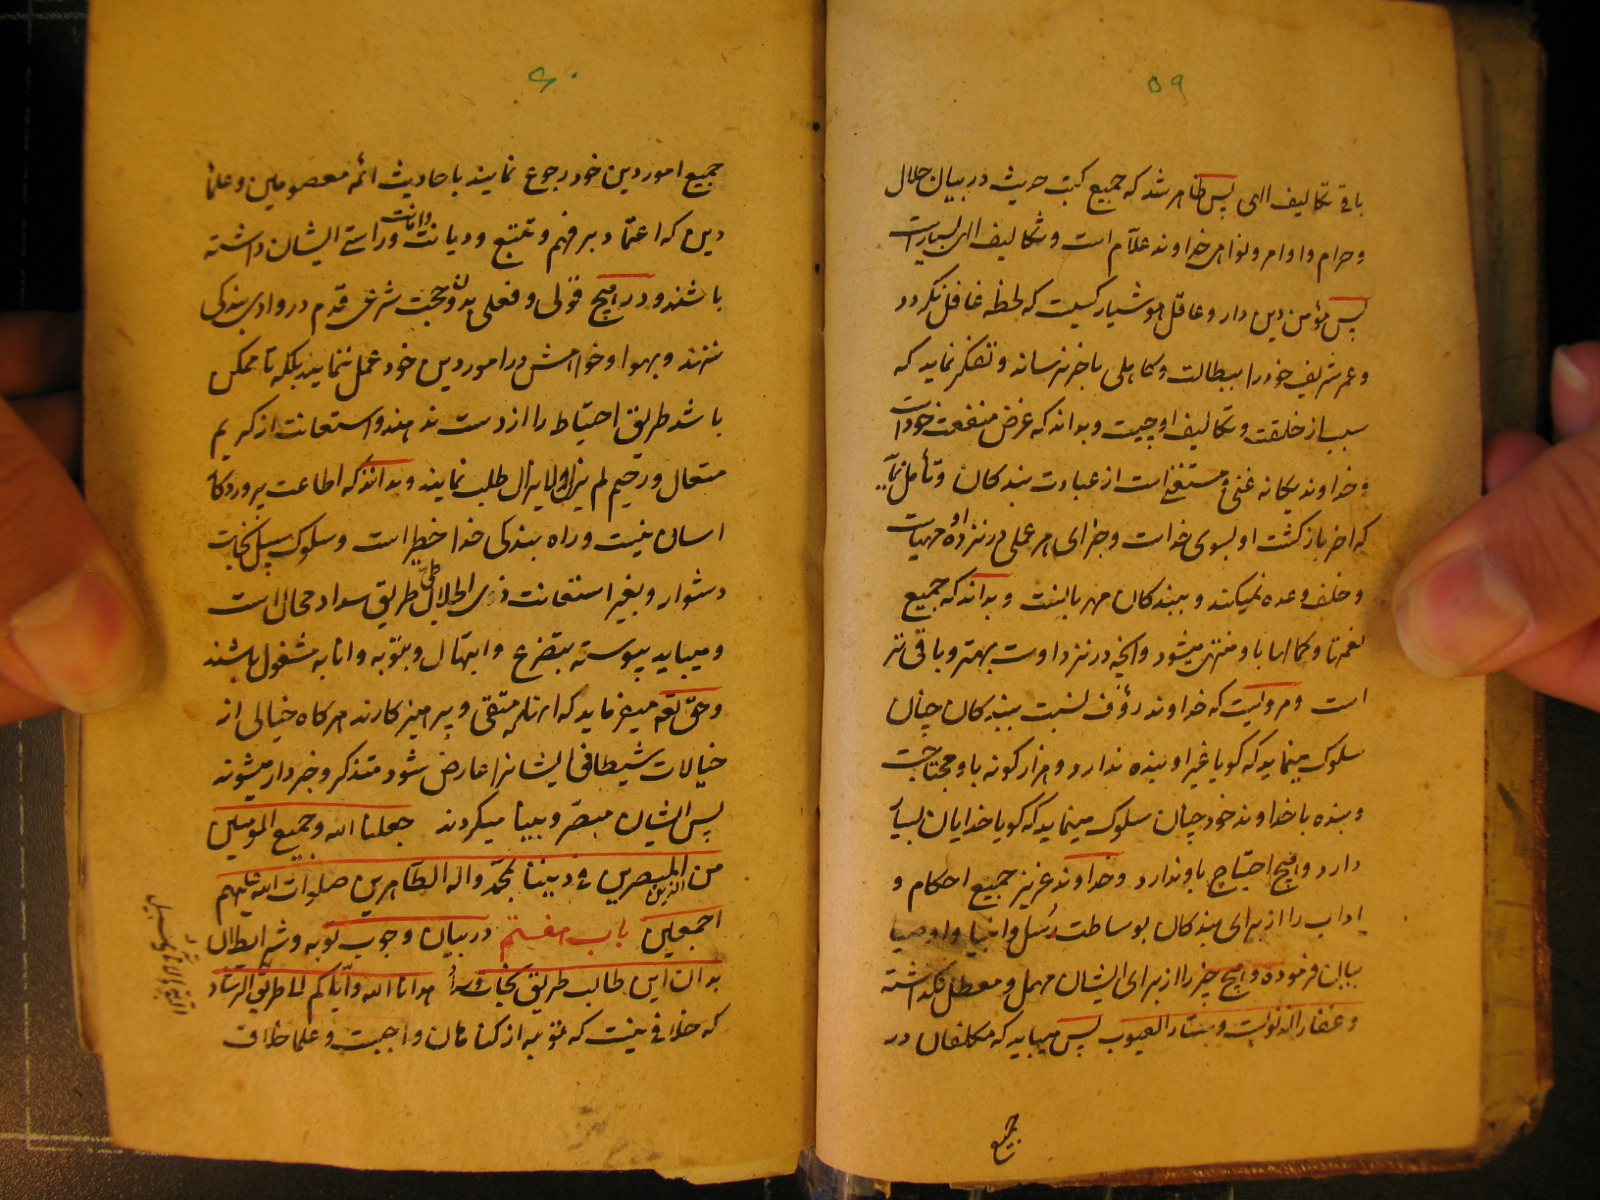 ۵۹
باقی تکالیف الهی پس ظاهر شد که جمیع کتب حدیث در بیان حلال
و حرام و اوامر و نواهی خداوند علّام است و تکالیف الهی بسیار است
پس مؤمن دین دار و عاقل هوشیار کسیست که لحظه غافل نکردد
و عمر شریف خود را ببطالت و کاهلی باخر نرساند و تفکر نماید که
سبب از خلقت و تکالیف او چیست و بداند که غرض منفعت خود است
و خداوند یکانه غنی و مستغنی است از عبادت بندکان و تأمل نماید
که اخر بازکشت او بسوی خداست و جزای هر عملی در نزد او مهیاست
و خلف وعده نمیکند و ببندکان مهربانست و بداند که جمیع
نعمتها و کمالها باو منتهی میشود و انچه در نزد اوست بهتر و باقی تر
است و مرویست که خداوند رؤف نسبت ببندکان چنان
سلوک مینماید که کویا غیر او بنده ندارد و هزار کونه باو محتاجست
و بنده با خداوند خود چنان سلوک مینماید که کویا خدایان بسیار
دارد و هیچ احتیاج باو ندارد و خداوند عزیز جمیع احکام و
اداب را از برای بندکان بوساطت رسل و انبیا و اوصیا
بیان فرموده و هیچ چیز را از برای ایشان مهمل و معطل نکذاشته
و غفار الذنوب و ستار العیوب پس میباید که مکلفان در
جمیع
۶۰
جمیع امور دین خود رجوع نمایند باحادیث ائمه معصومین و علمای
دین که اعتماد بر فهم و تتبع و دیانت و امانت و راستی ایشان داشته
باشند و در هیچ قولی و فعلی بدون حجت شرعی قدم در وادی بندکی
نزنند و بهوا و خواهش در امور دین خود عمل ننمایند بلکه تا ممکن
باشد طریق احتیاط را از دست ندهند و استعانت از کریم
متعال و رحیم لم یزل و لا یزال طلب نمایند و بدانند که اطاعت پروردکار
اسان نیست و راه بندکی خدا خطیر است و سلوک سبیل نجات
دشوار و بغیر استعانت ذی الجلال طی طریق سداد محال است
و میباید پیوسته بتضرع و ابتهال و بتوبه و انابه مشغول باشند
و حق تعم میفرماید که انانکه متقی و پرهیزکارند هرکاه خیالی از
خیالات شیطانی ایشانرا عارض شود متذکر و خبردار میشوند
پس ایشان مبصّر و بینا میکردند جعلنا الله و جمیع المومنین
من المبصرین فی دیننا بمحمّد و اله الطّاهرین صلوات الله علیهم
اجمعین باب هفتم در بیان وجوب توبه و شرایط ان
بدان این طالب طریق نجات هدانا الله و ایّاکم الی طریق الرشاد
که خلافی نیست که توبه از کناهان واجبست و علما خلاف